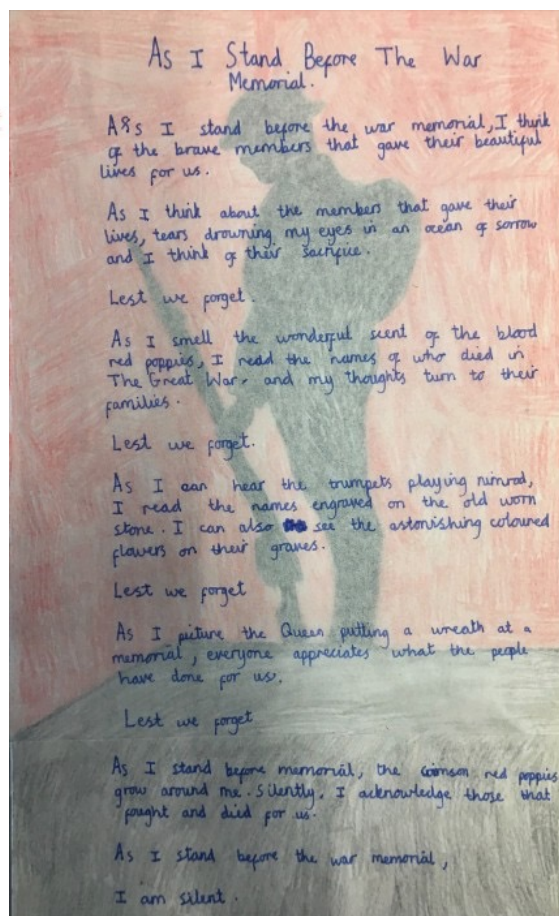 As I Stand Before The War
Memorial.
As I stand before the war memorial, I think
of the brave members that gave their beautiful
lives for us.
As I think about the members that gave their
lives, tears drowning my eyes in an ocean of sorrow
and I think of their sacrifice.
Lest we forget.
As I smell the wonderful scent of the blood
red poppies, I read the names of who died in
The Great War. and my thoughts turn to their
families.
Lest we forget.
As I can hear the trumpets playing nimrod,
I read the names engraved on the old worn
stone. I can also see the astonishing coloured
flowers on their graves.
Lest we forget
As I picture the Queen putting a wreath at a
memorial, everyone appreciates what the people
have done for us.
Lest we forget
As I stand before memorial, the crimson red poppies
grow around me. Silently, I acknowledge those that
fought and died for us.
As I stand before the war memorial,
I am silent.